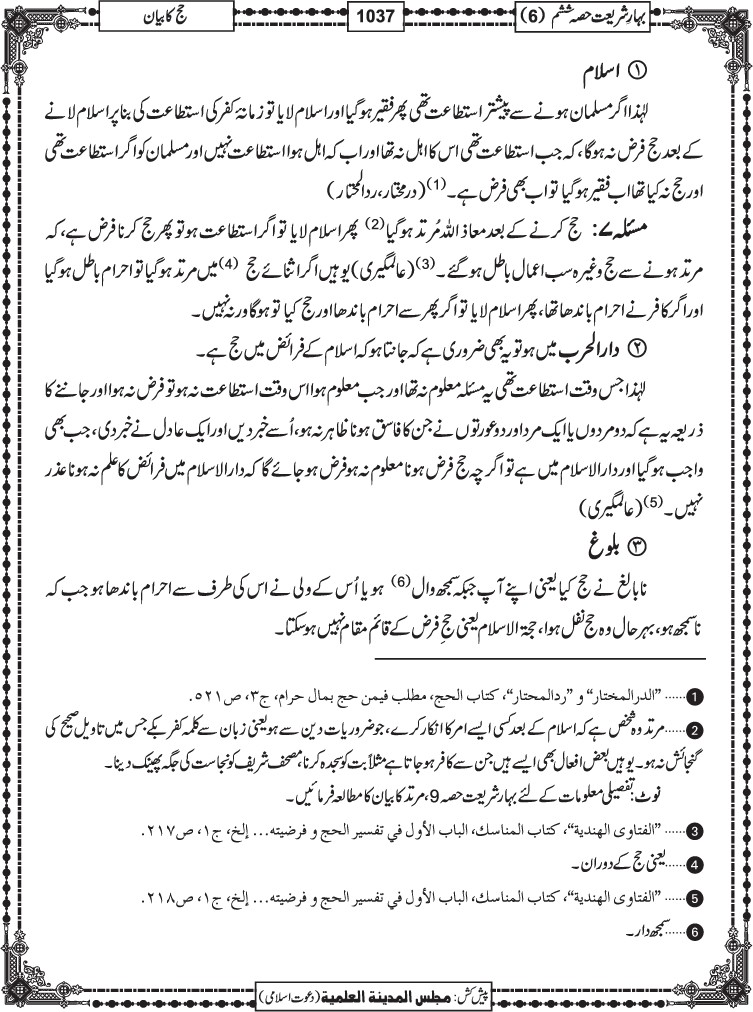 بہارِ شریعت حصہ ششم (6)
1037
حج کا بیان
① اسلام
لہٰذا اگر مسلمان ہونے سے پیشتر استطاعت تھی پھر فقیر ہوگیا اور اسلام لایا تو زمانۂ کفر کی استطاعت کی بنا پر اسلام لانے
کے بعد حج فرض نہ ہوگا، کہ جب استطاعت تھی اس کا اہل نہ تھا اور اب کہ اہل ہوا استطاعت نہیں اور مسلمان کو اگر استطاعت تھی
اور حج نہ کیا تھا اب فقیر ہوگیا تو اب بھی فرض ہے۔ (1) (درمختار، ردالمحتار)
مسئلہ ۷: حج کرنے کے بعد معاذ اللہ مُرتد ہوگیا (2) پھر اسلام لایا تو اگر استطاعت ہو تو پھر حج کرنا فرض ہے، کہ
مرتد ہونے سے حج وغیرہ سب اعمال باطل ہوگئے۔ (3) (عالمگیری) یوہیں اگر اثنائے حج (4) میں مرتد ہوگیا تو احرام باطل ہوگیا
اور اگر کافر نے احرام باندھا تھا، پھر اسلام لایا تو اگر پھر سے احرام باندھا اور حج کیا تو ہوگا ورنہ نہیں۔
② دارالحرب میں ہو تو یہ بھی ضروری ہے کہ جانتا ہو کہ اسلام کے فرائض میں حج ہے۔
لہٰذا جس وقت استطاعت تھی یہ مسئلہ معلوم نہ تھا اور جب معلوم ہوا اس وقت استطاعت نہ ہو تو فرض نہ ہوا اور جاننے کا
ذریعہ یہ ہے کہ دو مردوں یا ایک مرد اور دو عورتوں نے جن کا فاسق ہونا ظاہر نہ ہو، اُسے خبر دیں اور ایک عادل نے خبر دی، جب بھی
واجب ہوگیا اور دارالاسلام میں ہے تو اگرچہ حج فرض ہونا معلوم نہ ہو فرض ہو جائے گا کہ دارالاسلام میں فرائض کا علم نہ ہونا عذر
نہیں۔ (5) (عالمگیری)
③ بلوغ
نابالغ نے حج کیا یعنی اپنے آپ جبکہ سمجھ وال (6) ہو یا اُس کے ولی نے اس کی طرف سے احرام باندھا ہو جب کہ
ناسمجھ ہو، بہرحال وہ حج نفل ہوا، حجۃ الاسلام یعنی حجِ فرض کے قائم مقام نہیں ہوسکتا۔
1 ...... "الدرالمختار" و "ردالمحتار"، كتاب الحج، مطلب فيمن حج بمال حرام، ج٣، ص٥٢١.
2 ...... مرتد وہ شخص ہے کہ اسلام کے بعد کسی ایسے امر کا انکار کرے، جو ضروریات دین سے ہو یعنی زبان سے کلمہ کفر بکے جس میں تاویل صحیح کی
گنجائش نہ ہو۔ یوہیں بعض افعال بھی ایسے ہیں جن سے کافر ہو جاتا ہے مثلاً بت کو سجدہ کرنا، مصحف شریف کو نجاست کی جگہ پھینک دینا۔
نوٹ: تفصیلی معلومات کے لئے بہارِ شریعت حصہ 9، مرتد کا بیان کا مطالعہ فرمائیں۔
3 ...... "الفتاوى الهندية"، كتاب المناسك، الباب الأول في تفسير الحج و فرضيته... إلخ، ج١، ص٢١٧.
4 ...... یعنی حج کے دوران۔
5 ...... "الفتاوى الهندية"، كتاب المناسك، الباب الأول في تفسير الحج و فرضيته... إلخ، ج١، ص٢١٨.
6 ...... سمجھدار۔
پیش کش: مجلس المدینۃ العلمیۃ (دعوتِ اسلامی)